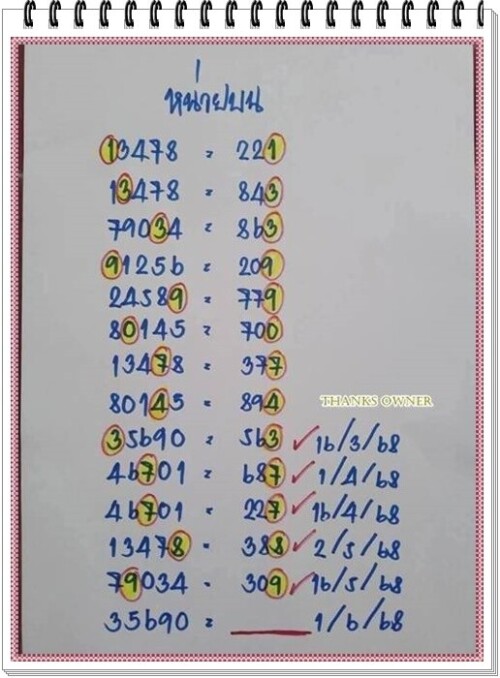 หน่วยบน
13478 = 221
13478 = 843
79034 = 863
91256 = 209
24589 = 779
80145 = 700
13478 = 377
80145 = 894
THANKS OWNER
35690 = 563 ✓ 16/3/68
46701 = 687 ✓ 1/4/68
46701 = 227 ✓ 16/4/68
13478 = 388 ✓ 2/5/68
79034 = 309 ✓ 16/5/68
35690 = ____ 1/6/68